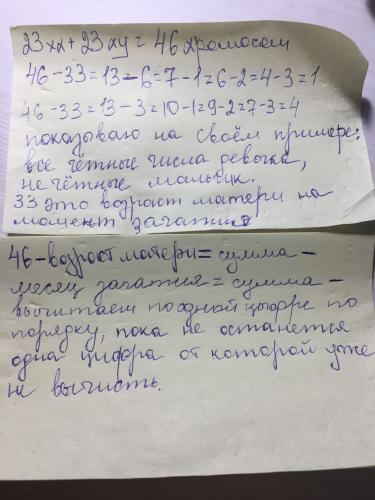 23хх + 23ху = 46 хромосом
46-33=13-6=7-1=6-2=4-3=1
46-33=13-3=10-1=9-2=7-3=4
показываю на своём примере:
все чётные числа девочка,
не чётные мальчик.
33 это возраст матери на
момент зачатия
46-возраст матери=сумма-
месяц зачатия=сумма-
вычитаем по одной цыфре по
порядку, пока не останется
одна цифра от которой уже
не вычисть.